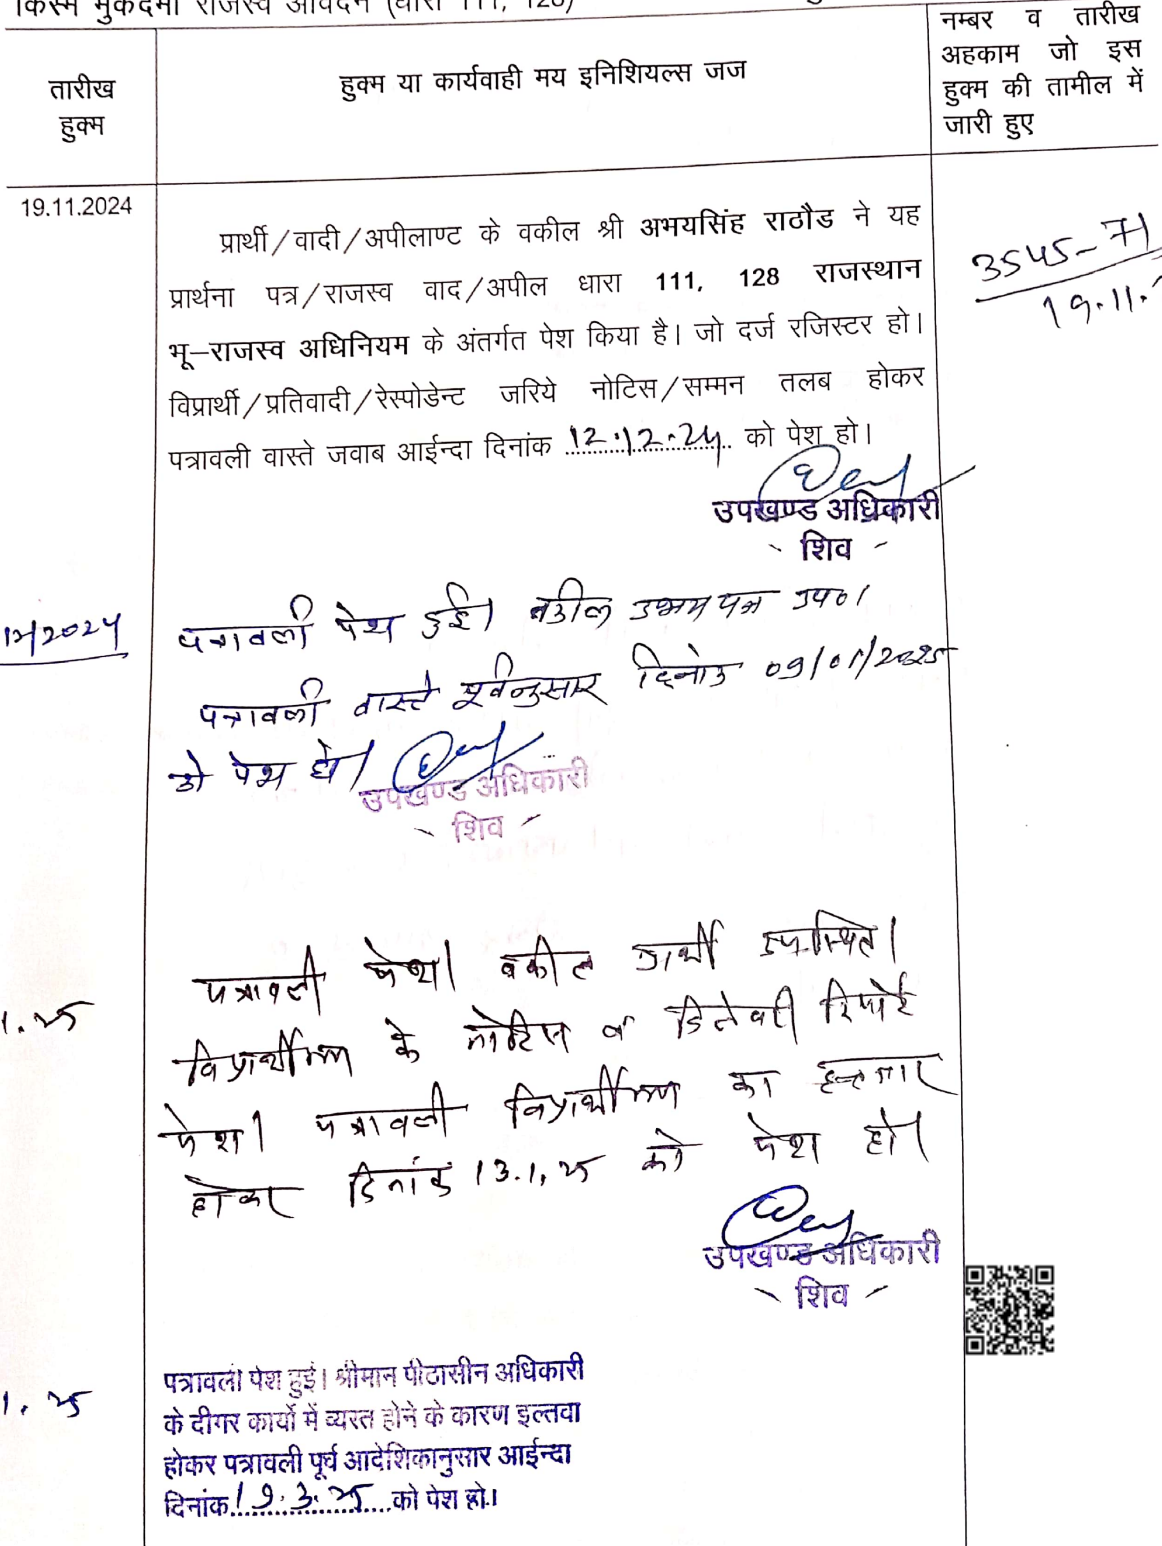 किस्म मुकदमा राजस्व आवेदन (धारा 111, 128)
तारीख
हुक्म
हुक्म या कार्यवाही मय इनिशियल्स जज
नम्बर व तारीख
अहकाम जो इस
हुक्म की तामील में
जारी हुए
19.11.2024
प्रार्थी/वादी/अपीलाण्ट के वकील श्री अभयसिंह राठौड ने यह
प्रार्थना पत्र/राजस्व वाद/अपील धारा 111, 128 राजस्थान
भू–राजस्व अधिनियम के अंतर्गत पेश किया है। जो दर्ज रजिस्टर हो।
विप्रार्थी/प्रतिवादी/रेस्पोडेन्ट जरिये नोटिस/सम्मन तलब होकर
पत्रावली वास्ते जवाब आईन्दा दिनांक 12.12.24 को पेश हो।
3545-71
19.11.
उपखण्ड अधिकारी
- शिव -
12/2024
पत्रावली पेश हुई। वकील उभयपक्ष उप०।
पत्रावली वास्ते पूर्वानुसार दिनांक 09/01/2025
को पेश हो।
उपखण्ड अधिकारी
- शिव -
1.25
पत्रावली पेश। वकील प्रार्थी उपस्थित।
विप्रार्थीगण के नोटिस व डिलेवरी रिपोर्ट
पेश। पत्रावली विप्रार्थीगण का इन्तजार
होकर दिनांक 13.1.25 को पेश हो।
उपखण्ड अधिकारी
- शिव -
1.25
पत्रावली पेश हुई। श्रीमान पीठासीन अधिकारी
के दीगर कार्यो में व्यस्त होने के कारण इल्तवा
होकर पत्रावली पूर्व आदेशिकानुसार आईन्दा
दिनांक 19.3.25 को पेश हो।